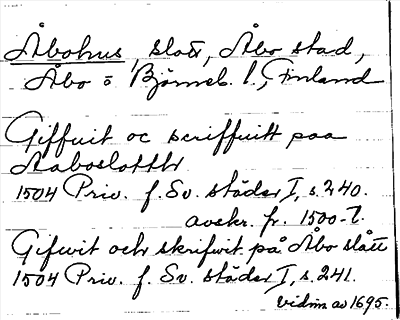 Åbohus, slott, Åbo stad,
Åbo o Björneb. l., Finland
Giffuit oc scriffuitt paa
Aaboslotthr
1504 Priv. f. Sv. städer I, s. 240.
avskr. fr. 1500-t.
Gifwit och skrifwit på Åbo slått
1504 Priv. f. Sv. städer I, s. 241.
vidim av 1695.